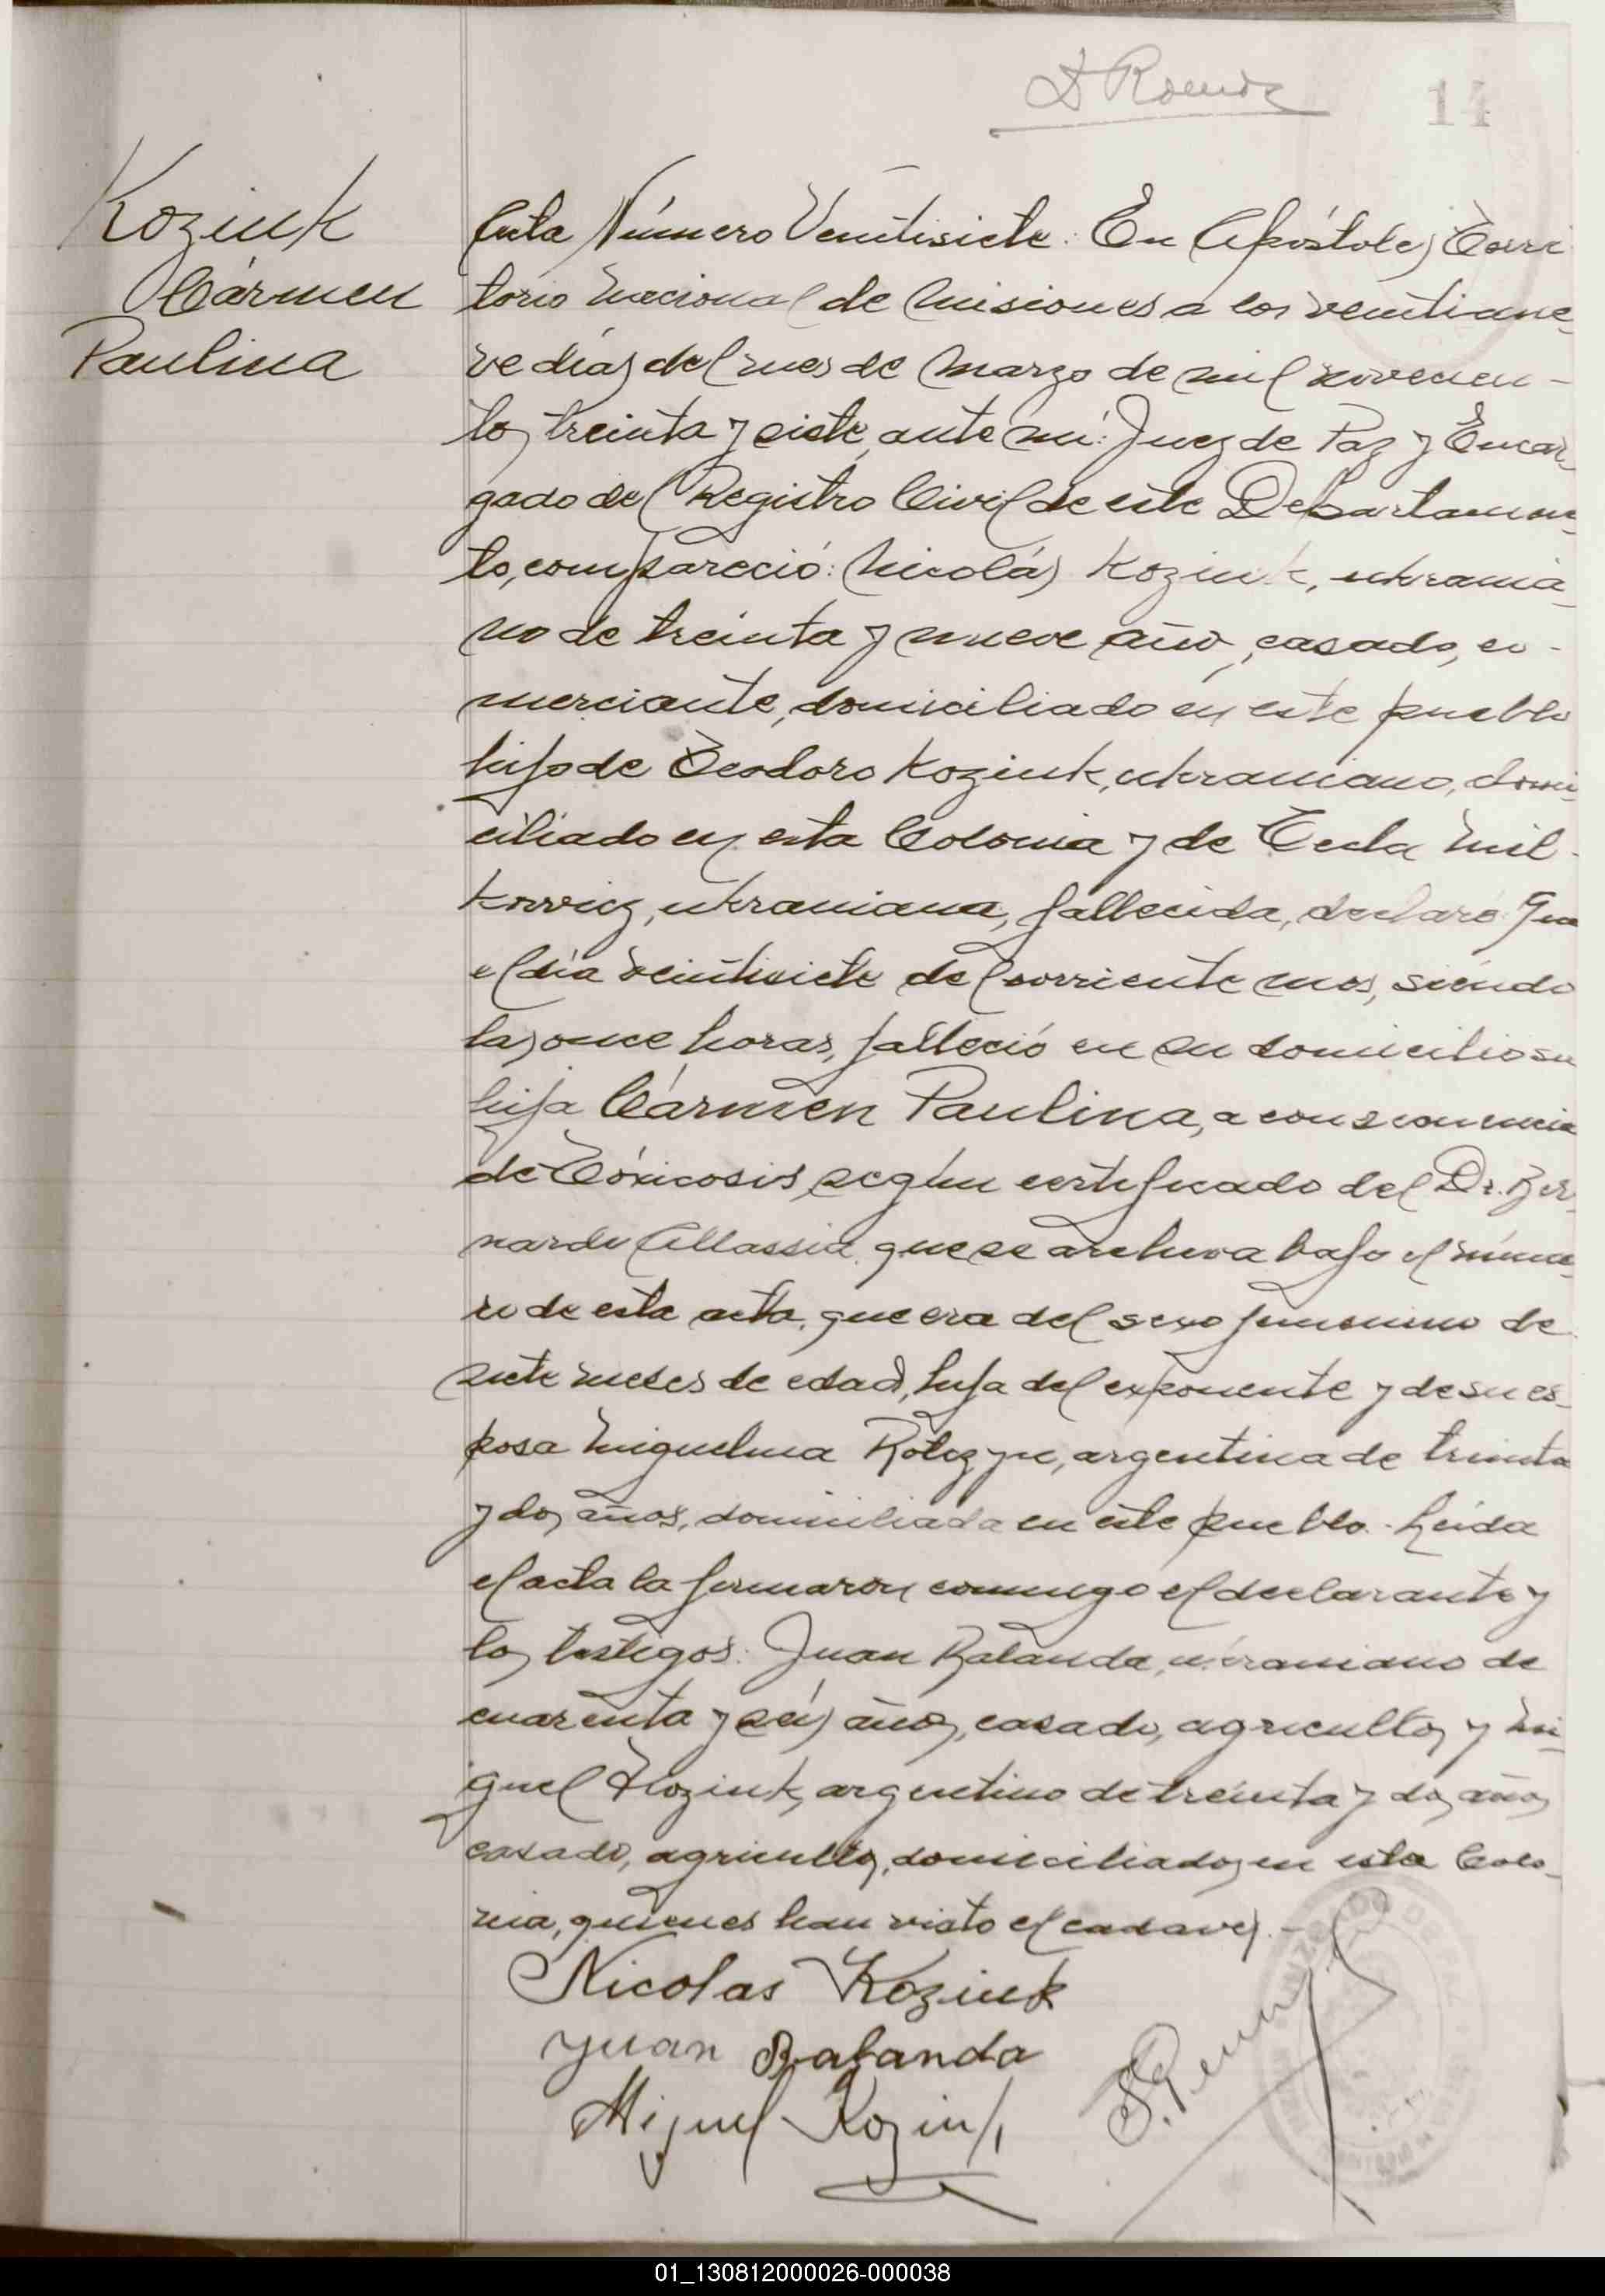 14
Koziuk
Cármen
Paulina
Acta Número Veintisiete. En Apóstoles, Terri
torio Nacional de Misiones a los veintinue-
ve días del mes de Marzo de mil novecien-
tos treinta y siete, ante mí: Juez de Paz y Encar-
gado del Registro Civil de este Departamen-
to, compareció: Nicolás Koziuk, ukrania-
no de treinta y nueve años, casado, co-
merciante, domiciliado en este pueblo
hijo de Teodoro Koziuk, ukraniano, domi-
ciliado en esta Colonia y de Tecla Mil-
kovvicz, ukraniana, fallecida, declaró: Que
el día veintisiete del corriente mes, siendo
las once horas, falleció en su domicilio su
hija Cármen Paulina, a consecuencia
de Tóxicosis, según certificado del Dr. Ber-
nardo Allassia que se archiva bajo el núme-
ro de esta acta, que era del sexo femenino de
siete meses de edad, hija del exponente y de su es-
posa Miguelina , argentina de treinta
y dos años, domiciliada en este pueblo. Leída
el acta la firmaron conmigo el declarante y
los testigos: Juan Balanda, ukraniano de
cuarenta y seis años, casado, agricultor y Mi-
guel Koziuk, argentino de treinta y dos años
casado, agricultor, domiciliados en esta Colo-
nia, quienes han visto el cadaver.-
Nicolas Koziuk
Juan Balanda
Miguel Koziuk
01_130812000026-000038